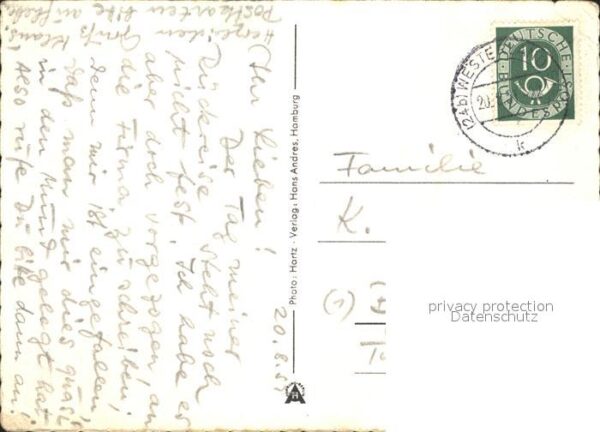 20.8.54
Ihr Lieben!
Der Tag meiner
Rückreise steht noch
nicht fest. Ich habe es
aber doch vorgezogen, an
die Firma zu schreiben,
denn mir ist eingefallen,
daß man mir dies quasi
in den Mund gelegt hat.
Also rufe Du bitte dann an!
Gruß Klaus
Postkarten bitte aufheben
Photo: Hartz - Verlag: Hans Andres, Hamburg
DEUTSCHE
BUNDESPOST
10
(24b) WESTE
20.
k
Familie
K.
(1)
privacy protection
Datenschutz